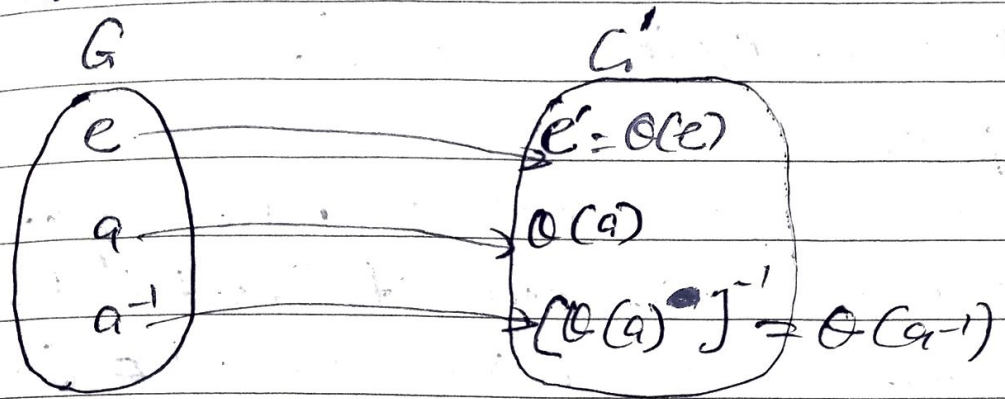 G G'
e e' = θ(e)
a θ(a)
a⁻¹ [θ(a)]⁻¹ = θ(a-1)